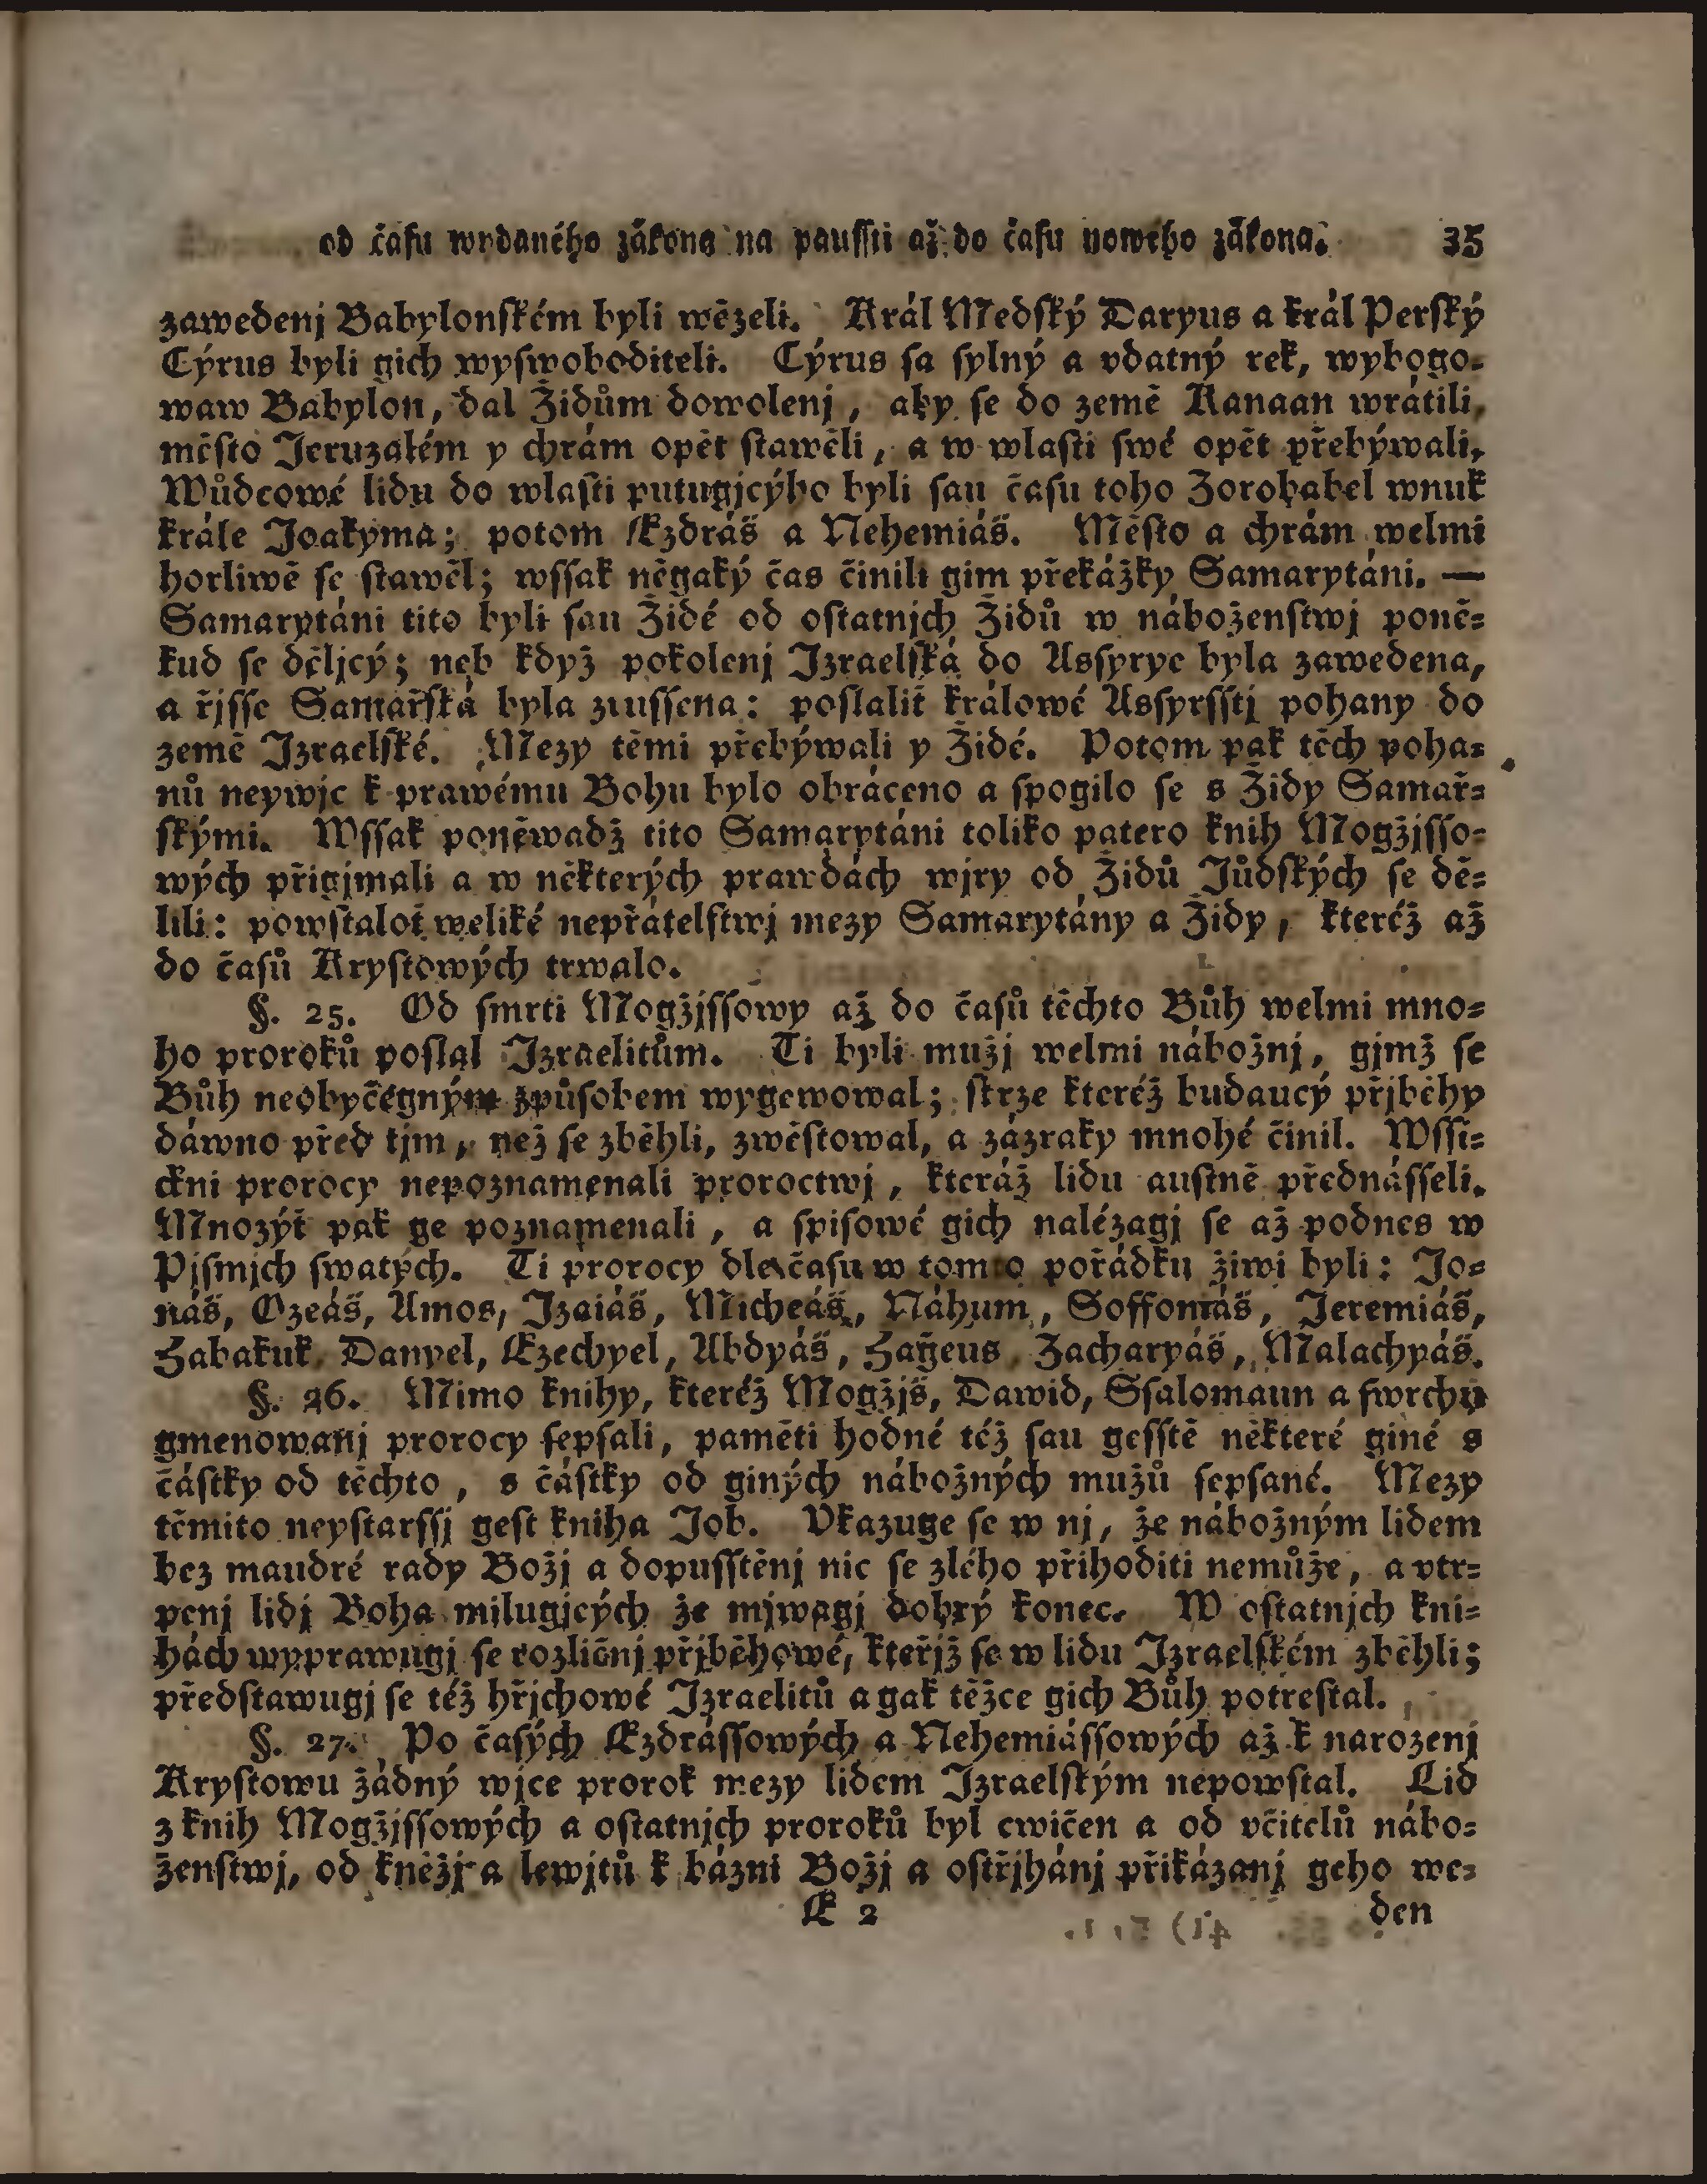 od času wydaného zákona na paussti až do času nowého zákona. 35
zawedenj Babylonſkém byli wězeli. Král Medſký Daryus a král Perſký
Cýrus byli gich wyſwoboditeli. Cýrus ſa ſylný a vdatný rek, wybogo-
waw Babylon, dal Židům dowolenj, aby ſe do země Kanaan wrátili,
měſto Jeruzalém y chrám opět ſtawěli, a w wlaſti ſwé opět přebýwali,
Wůdcowé lidu do wlaſti putugjcýho byli ſau čaſu toho Zorobabel wnuk
krále Joakyma; potom Ezdráš a Nehemiáš. Měſto a chrám welmi
horliwě ſe ſtawěl; wſſak něgaký čas činili gim překážky Samarytáni. —
Samarytáni tito byli ſau Židé od oſtatnjch Židů w náboženſtwj poně-
kud ſe děljcý; neb když pokolenj Izraelſká do Aſſyrye byla zawedena,
a řjſſe Samařſká byla zruſſena: poſlaliť králowé Aſſyrſſtj pohany do
země Izraelſké. Mezy těmi přebýwali y Židé. Potom pak těch poha-
nů neywjc k prawému Bohu bylo obráceno a ſpogilo ſe s Židy Samař-
ſkými. Wſſak poněwadž tito Samarytáni toliko patero knih Mogžjſſo-
wých přigjmali a w některých prawdách wjry od Židů Jůdſkých ſe dě-
lili: powſtaloť weliké nepřátelſtwj mezy Samarytány a Židy, kteréž až
do čaſů Kryſtowých trwalo.
§. 25. Od ſmrti Mogžjſſowy až do čaſů těchto Bůh welmi mno-
ho proroků poſlal Izraelitům. Ti byli mužj welmi nábožnj, gjmž ſe
Bůh neobyčegným způſobem wygewowal; ſkrze kteréž budaucý přjběhy
dáwno před tjm, než ſe zběhli, zwěſtowal, a zázraky mnohé činil. Wſſi-
ckni prorocy nepoznamenali proroctwj, kteráž lidu auſtně přednáſſeli.
Mnozýť pak ge poznamenali, a ſpiſowé gich nalézagj ſe až podnes w
Pjſmjch ſwatých. Ti prorocy dle čaſu w tomto pořádku žiwi byli: Jo-
náš, Ozeáš, Amos, Izaiáš, Micheáš, Náhum, Soffoniáš, Jeremiáš,
Habakuk, Danyel, Ezechyel, Abdyáš, Hageus, Zacharyáš, Malachyáš.
§. 26. Mimo knihy, kteréž Mogžjš, Dawid, Sſalomaun a ſwrchu
gmenowanj prorocy ſepſali, paměti hodné též ſau geſſtě některé giné s
částky od těchto, s částky od giných nábožných mužů ſepſané. Mezy
těmito neyſtarſſj geſt kniha Job. Vkazuge ſe w nj, že nábožným lidem
bez maudré rady Božj a dopuſſtěnj nic ſe zlého přihoditi nemůže, a vtr-
penj lidj Boha milugjcých že mjwagj dobrý konec. W oſtatnjch kni-
hách wyprawugj ſe rozličnj přjběhowé, kteřjž ſe w lidu Izraelſkém zběhli;
předſtawugj ſe též hřjchowé Izraelitů a gak těžce gich Bůh potreſtal.
§. 27. Po čaſých Ezdráſſowých a Nehemiáſſowých až k narozenj
Kryſtowu žádný wjce prorok mezy lidem Izraelſkým nepowſtal. Lid
z knih Mogžjſſowých a oſtatnjch proroků byl cwičen a od včitelů nábo-
ženſtwj, od kněžj a lewjtů k bázni Božj a oſtřjhánj přikázanj geho we-
E 2 den